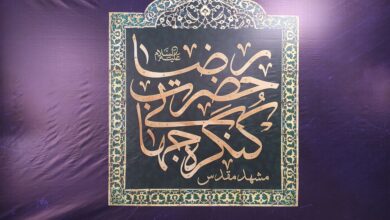 کنگره جهانی
حضرت رضا
علیه‌السلام
مشهد مقدس